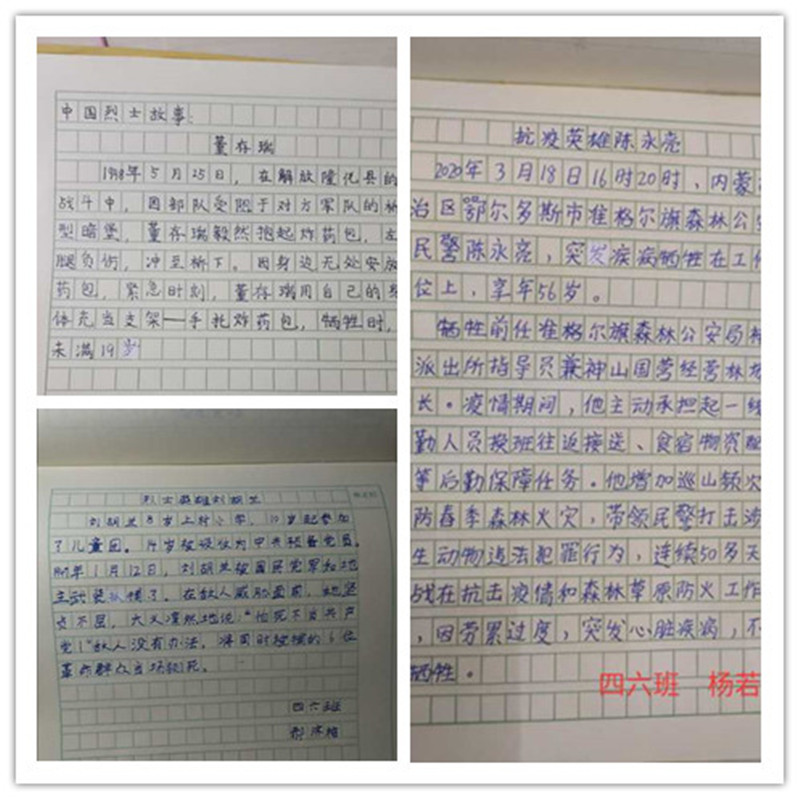 中国烈士故事:
董存瑞
1948年5月25日，在解放隆化县的
战斗中，因部队受阻于对方军队的桥
型暗堡，董存瑞毅然抱起炸药包，左
腿负伤，冲至桥下。因身边无处安放
药包，紧急时刻，董存瑞用自己的身
体充当支架——手托炸药包，牺牲时，
未满19岁
烈士英雄刘胡兰
刘胡兰8岁上村小学，10岁起参加
了儿童团。14岁被设位为中共预备党员。
1947年1月12日，刘胡兰被国民党军和地
主武装抓捕了。在敌人威胁面前，她坚
贞不屈，大义凛然地说："怕死不当共产
党！"敌人没有办法，将同时被捕的6位
革命群众当场铡死。
四六班
抗疫英雄陈永亮
2020年3月18日16时20时、内蒙
治区鄂尔多斯市准格尔旗森林公安
民警陈永亮，突发疾病牺牲在工作
位上，享年56岁。
牺牲前任准格尔旗森林公安局神
派出所指导员兼神山国营经营林场
长。疫情期间，他主动承担起一线
勤人员换班往返接送、食宿物资配
等后勤保障任务。他增加巡山频次
防春季森林火灾，带领民警打击涉
生动物违法犯罪行为，连续50多天
战在抗击疫情和森林草原防火工作
，因劳累过度，突发心脏疾病，不
牺牲。
四六班 杨若